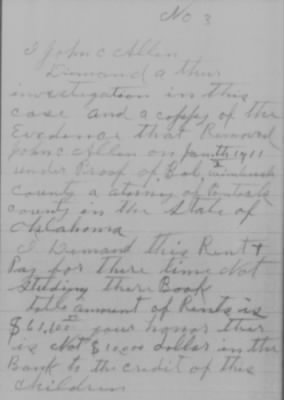 No 3
I John C Allen
Dimand a thur
investigation in this
case and a coppy of the
Evedence that Removed
John C Allen on Jan 1911
under Proof of
county a atorny of
county in the State of
Oklahoma
I Demand this Rent +
Pay for there time Not
Studing there Book
totle amount of Rents is
your honor ther
is Not dollar in the
Bank to the credit of this
children